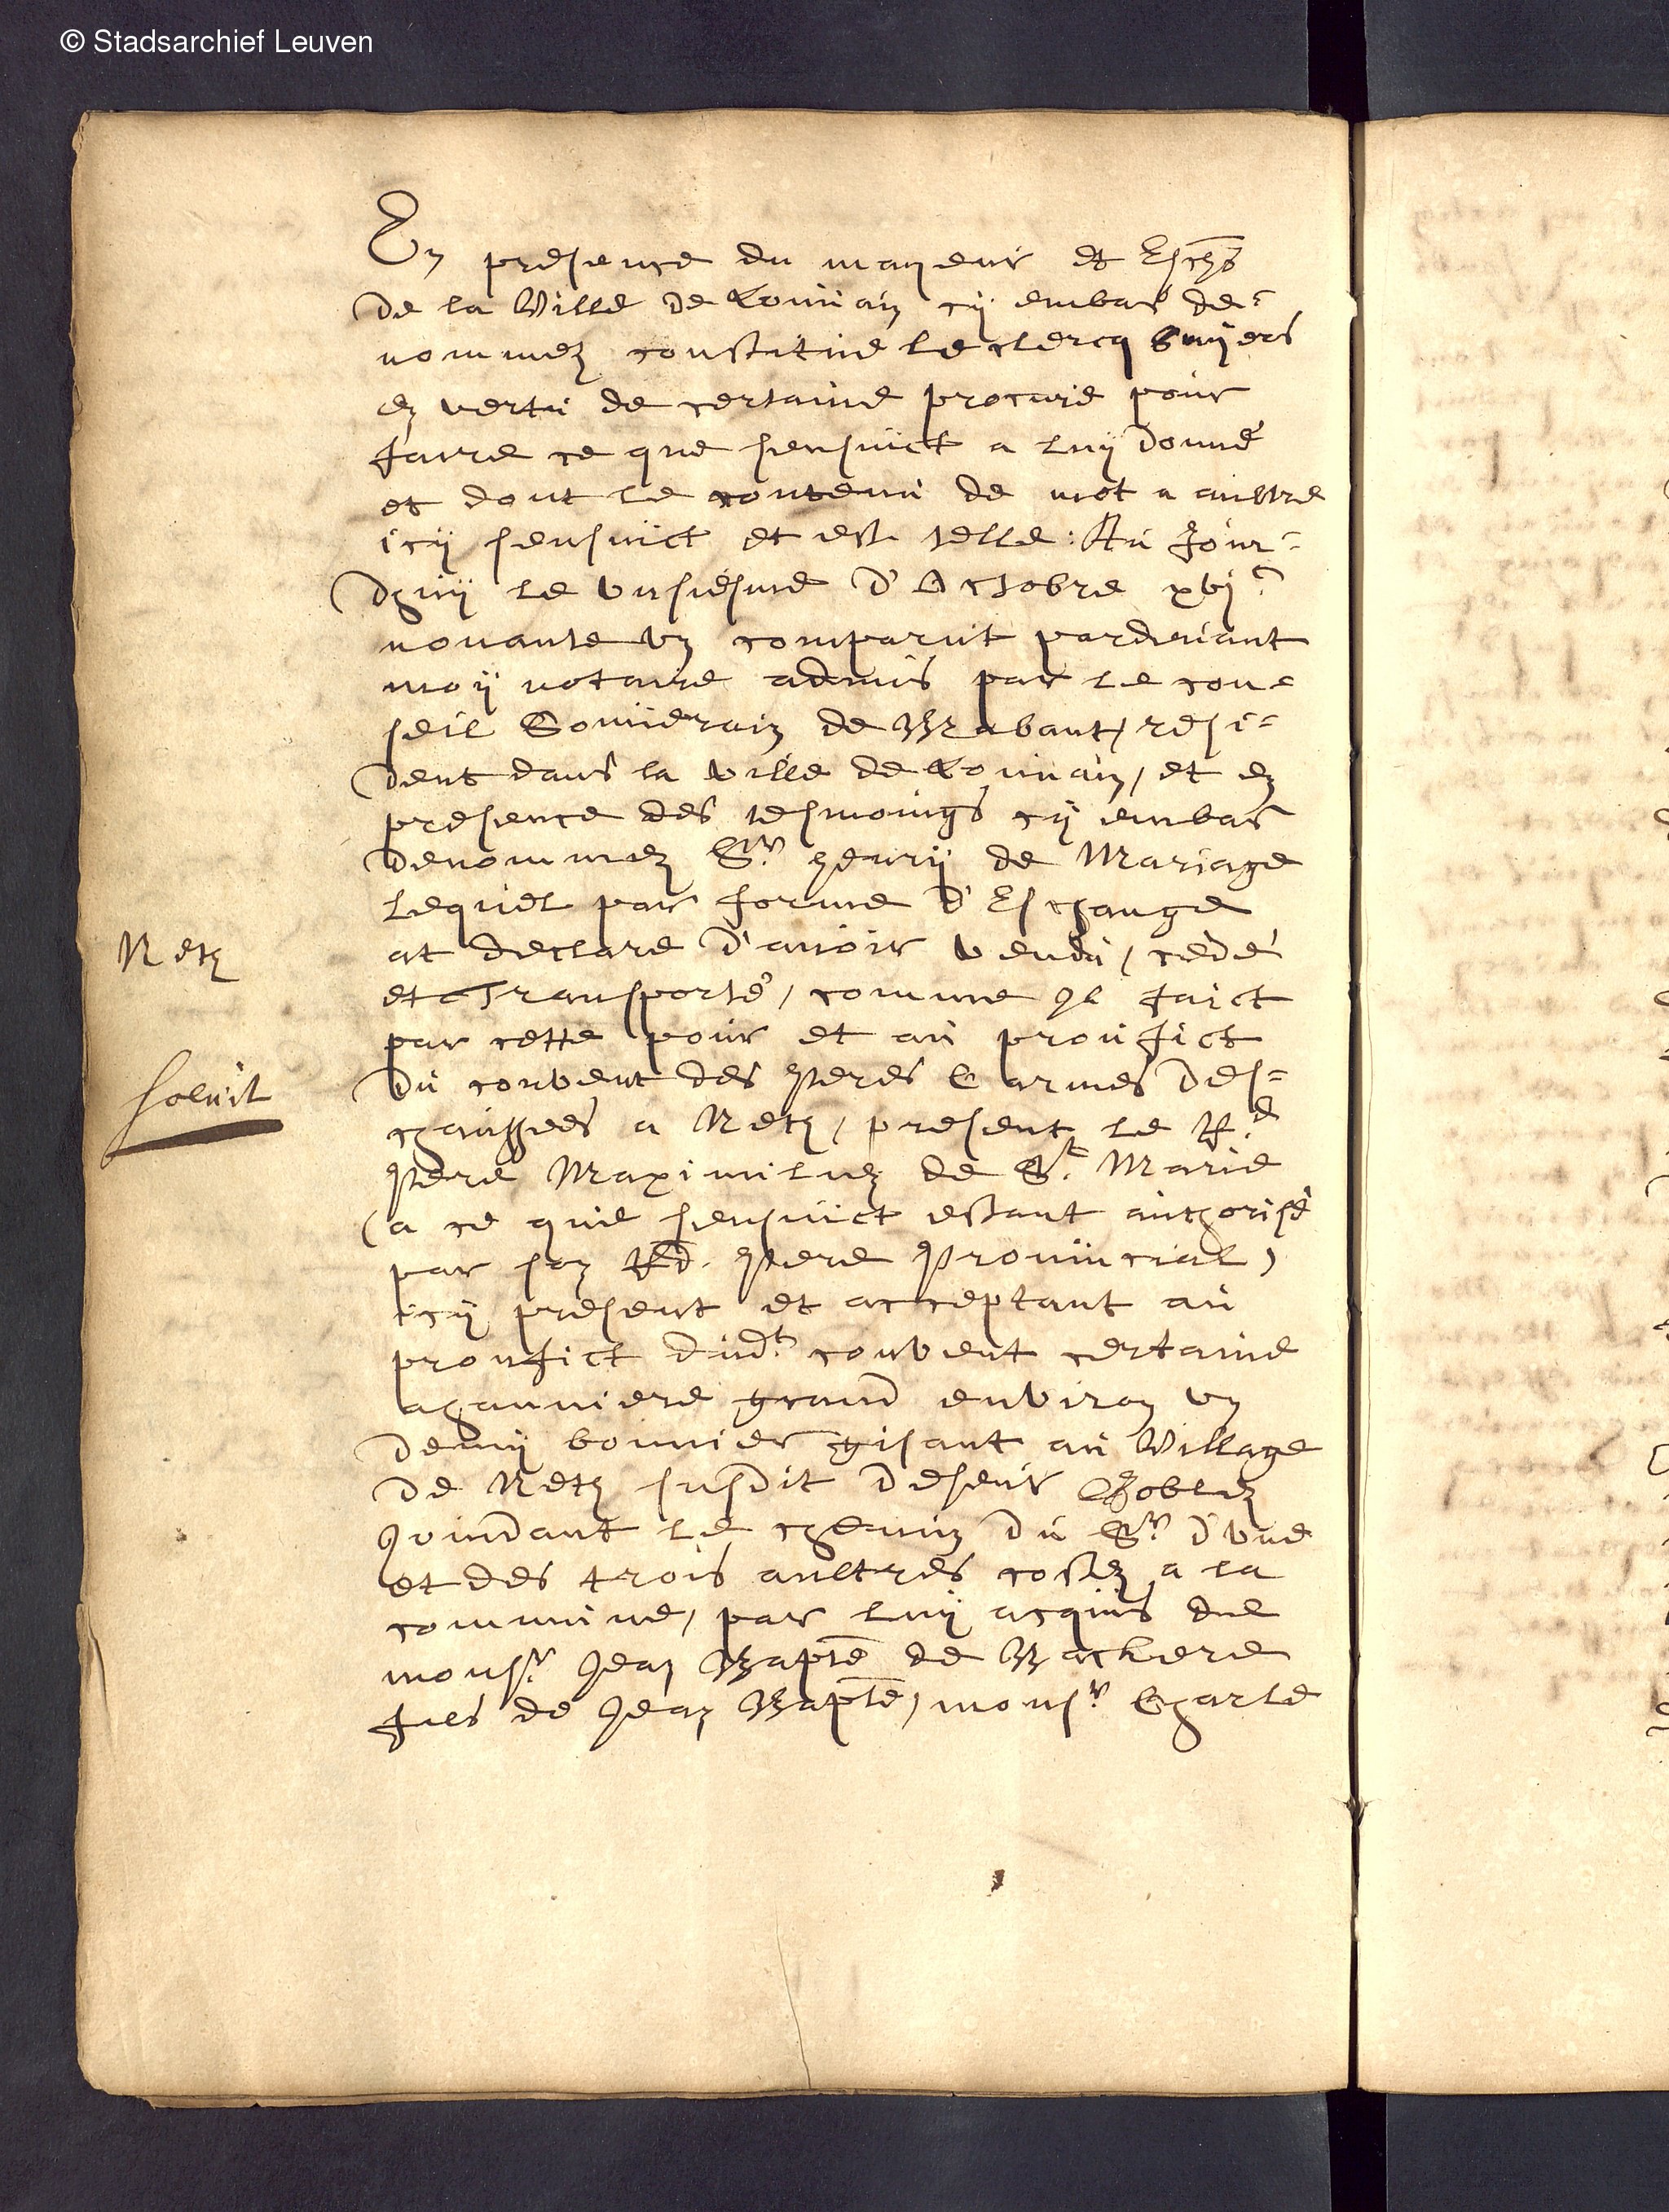 © Stadsarchief Leuven
En presence du mayeur et Eschs
de la Ville de Louuain cÿ embas de=
nommez constitué le clercq buÿers
en vertu de certaine procure pour
faire ce que sensuict a luÿ donné
et dont le contenu de mot a aultre
icÿ sensuict et est telle: Au Jour=
dhuÿ le vnsiesme d'Octobre xvjc
nonante vn comparut pardeuant
moÿ notaire admis par le con=
seil Souuerain de Brabant, resi=
dent dans la ville de Louuain, et en
presence des tesmoings cÿ embas
denommez Sr. henrÿ de Mariage
Lequel par forme d'Eschange
at declare d'auoir vendu, cedé
et Transporté, comme Jl faict
par cette pour et au proufict
du convent des Peres Carmes des=
chaussees a Neth, present le Rd.
Pere Maximilien de Ste. Marie
(a ce que sensuict estant authorisé
par son Rd. Pere Prouincial)
icÿ present et acceptant au
proufict dudt. convent certaine
aghanniere grand environ vn
demÿ bonnier gisant au Village
de Neth susdit deseur Goblez
Joindant le chemin du Sr. d'vne
et des trois aultres costez a la
commune, par luÿ acquis de
monsr. Jean Bapte de Backere
fils de Jean Bapte, monsr. Charle
Neth
soluit